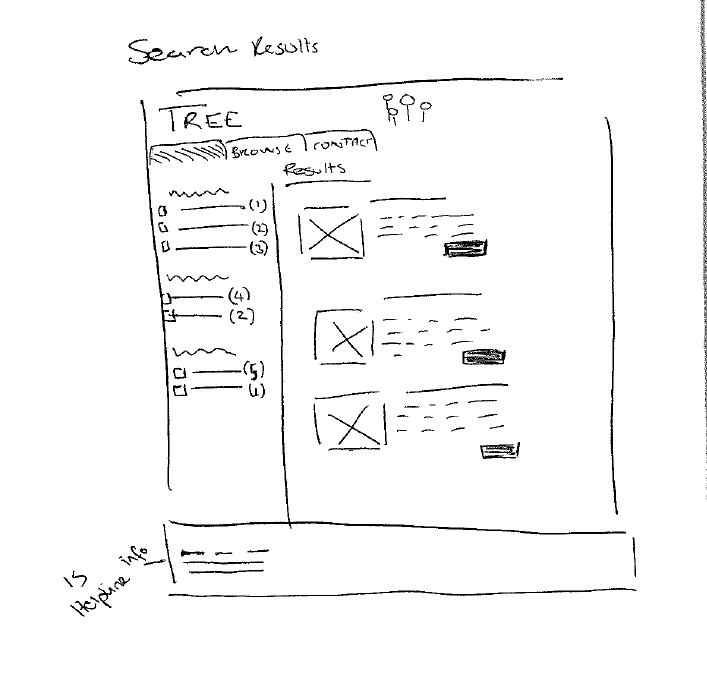 Search Results
TREE
BROWSE CONTACT
Results
(1)
(2)
(3)
(4)
(2)
(5)
(1)
IS
Helpline info